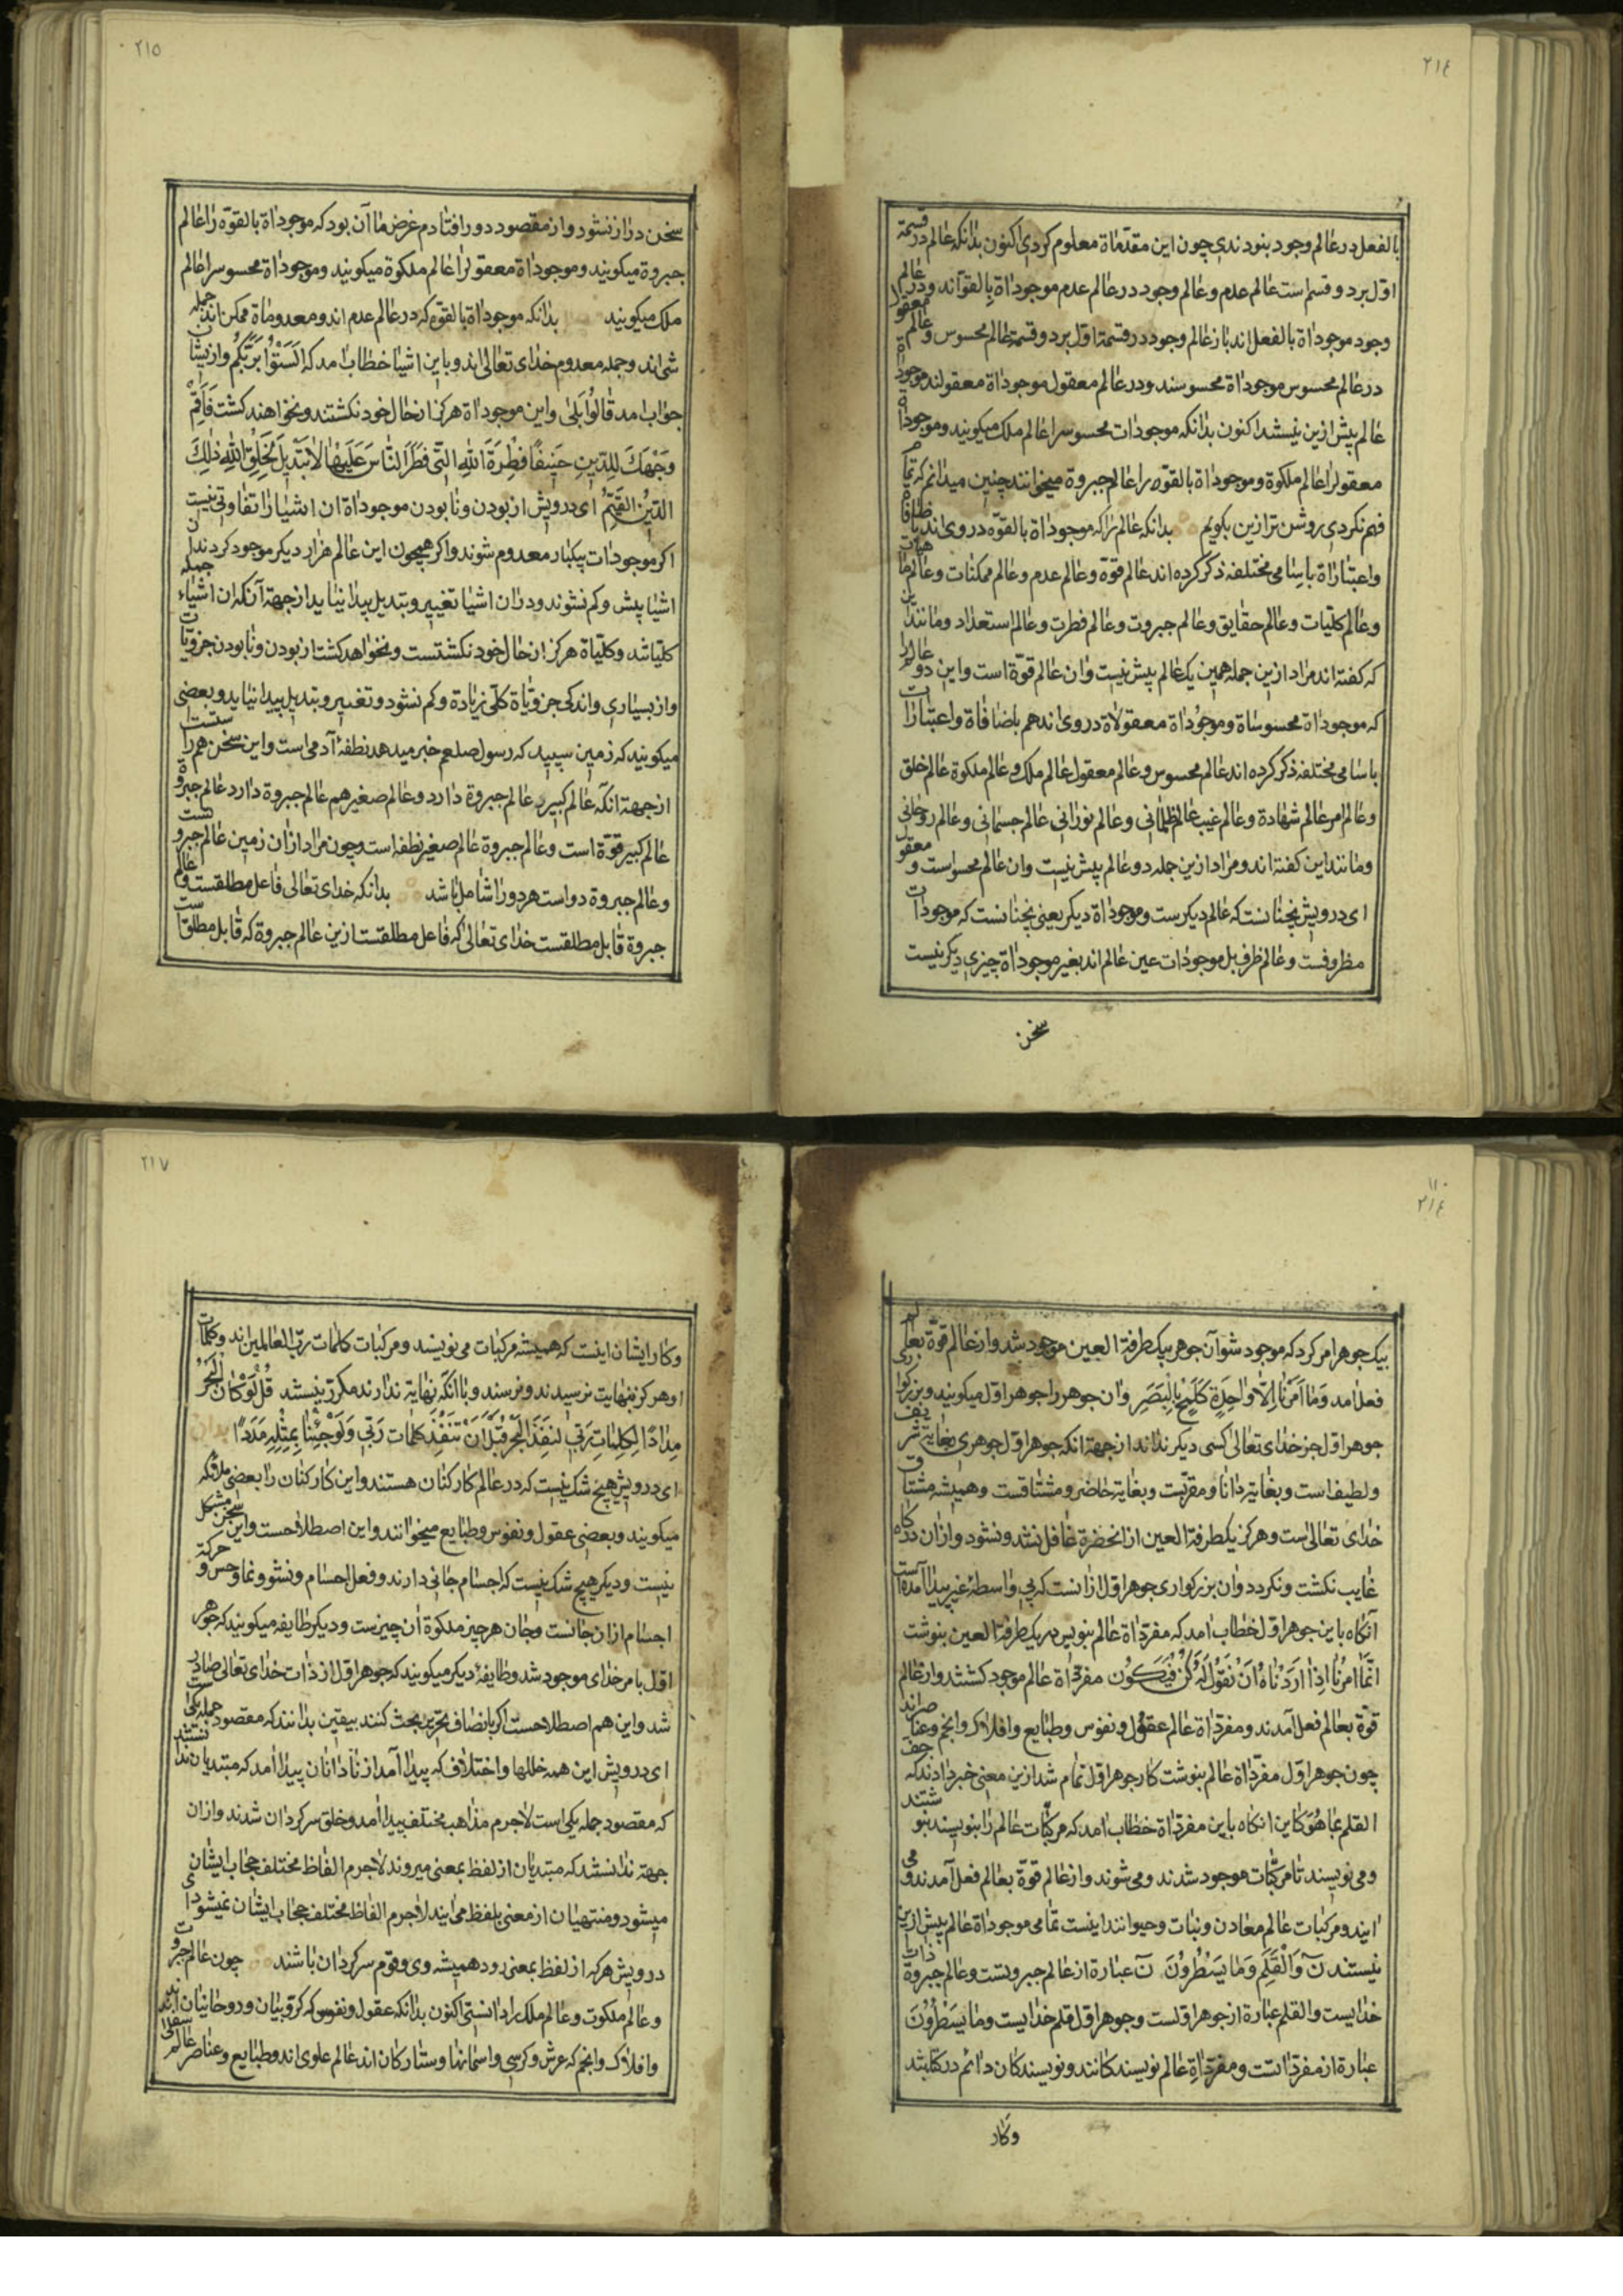 ٢١٤
بالفعل در عالم وجود بنودندی چون این مقدّماة معلوم کردی اکنون بدانکه عالم در قسمة
اوّل بر دو قسم است عالم عدم و عالم وجود در عالم عدم موجوداة بالقوّاند و در عالم
وجود موجوداة بالفعل اند باز عالم وجود در قسمة اوّل بر دو قسمة عالم محسوس و عالم معقول
در عالم محسوس موجوداة محسوسند و در عالم معقول موجوداة معقولند موجوداة
عالم بیش ازین نیستند اکنون بدانکه موجودات محسوس را عالم ملک میکویند و موجوداة
معقول را عالم ملکوة و موجوداة بالقوّه را عالم جبروة میخوانند چنین میدانم که تمام
فهم نکردی روشن تر ازین بکویم بدانکه عالم را که موجوداة بالقوّه در وی اند باضافاة
و اعتباراة باسامی مختلفه ذکر کرده اند عالم قوّة و عالم عدم و عالم ممکنات و عالم ماهیات
و عالم کلّیات و عالم حقایق و عالم جبروت و عالم فطرت و عالم استعداد و مانند این
که کفته اند مراد ازین جمله همین یک عالم بیش نیست و ان عالم قوّة است و این دو عالم را
که موجوداة محسوساة و موجوداة معقولاة در وی اند هم باضافاة و اعتبارات
باسامی مختلفه ذکر کرده اند عالم محسوس و عالم معقول عالم ملک و عالم ملکوة عالم خلق
و عالم امر عالم شهادة و عالم غیب عالم ظلمانی و عالم نورانی عالم جسمانی و عالم روحانی
و مانند این کفته اند و مراد ازین جمله دو عالم بیش نیست و ان عالم محسوس است و معقول
ای درویش نجنانست که عالم دیکرست و موجوداة دیکر یعنی نجنانست که موجودات
مظروفست و عالم ظرف بل موجودات عین عالم اند بغیر موجوداة چیزی دیکر نیست
سخن
٢١٥
سخن دراز نشود و از مقصود دور افتادم غرض ما آن بود که موجوداة بالقوّه را عالم
جبروة میکویند و موجوداة معقول را عالم ملکوة میکویند و موجوداة محسوس را عالم
ملک میکویند بدانکه موجوداة بالقوّه که در عالم عدم اند و معدوماة ممکن اند جمله
شی اند و جمله معدوم خدای تعالی اند و باین اشیا خطاب امد که اَلَسْتُ بِرَبِّکُم و ازیشان
جواب امد قالُوا بَلیٰ و این موجوداة هرکز از حال خود نکشتند و نخواهند کشت فَاَقِمْ
وَجْهَكَ لِلدّینِ حَنیفًا فِطْرَةَ اللهِ الَّتی فَطَرَ النّاسَ عَلَیْهٰا لاٰ تَبْدیلَ لِخَلْقِ اللهِ ذٰلِكَ
الدّینُ القَیِّمُ ای درویش از بودن و نابودن موجوداة ان اشیا را تفاوتی نیست
اکر موجودات بیکبار معدوم شوند و اکر همچون این عالم هزار دیکر موجود کردند ان
اشیا بیش و کم نشوند و در ان اشیا تغییر و تبدیل پیدا نیاید از جهة آنکه ان اشیاء جمله
کلّیاتند و کلّیاة هرکز از حال خود نکشتست و نخواهد کشت از بودن و نابودن جزویّات
و از بسیاری و اندکی جزویّاة کلّی زیادة و کم نشود و تغییر و تبدیل پیدا نیاید و بعضی
میکویند که زمین سپید که رسول صلعم خبر میدهد نطفهٔ آدمی است و این سخن هم راستست
از جهة انکه عالم کبیر عالم جبروة دارد و عالم صغیر هم عالم جبروة دارد عالم جبروة
عالم کبیر قوّة است و عالم جبروة عالم صغیر نطفه است و چون مراد از ان زمین عالم جبروتست
و عالم جبروة دو است هر دو را شامل باشد بدانکه خدای تعالی فاعل مطلقست و عالم
جبروة قابل مطلقست خدای تعالی که فاعل مطلقست ازین عالم جبروة که قابل مطلقست
بیک جوهر امر کرد که موجود شو آن جوهر بیک طرفة العین موجود شد و از عالم قوّة بعالم
فعل امد وَمٰا اَمْرُنٰا اِلّاٰ وٰاحِدَةٌ کَلَمْحٍ بِالْبَصَرِ و ان جوهر را جوهر اوّل میکویند و بزرکواری
جوهر اوّل جز خدای تعالی کسی دیکر نداند از جهة انکه جوهر اوّل جوهری بغایة شریف
و لطیف است و بغایة دانا و مقرّبست و بغایة حاضر و مشتاقست و همیشه مشتاق
خدای تعالی است و هرکز یک طرفة العین از انحضرة غافل نشد و نشود و از ان درکاه
غایب نکشت و نکردد و ان بزرکواری جوهر اوّل از انست که بی واسطهٔ غیر پیدا آمده است
آنکاه باین جوهر اوّل خطاب امد که مفرداة عالم بنویس در یک طرفة العین بنوشت
اِنَّمٰا اَمْرُنٰا اِذٰا اَرَدْنٰاهُ اَنْ نَقُولَ لَهُ کُنْ فَیَکُون مفرداة عالم موجود کشتند و از عالم
قوّة بعالم فعل آمدند و مفرداة عالم عقول و نفوس و طبایع و افلاک و انجم و عناصراند
چون جوهر اوّل مفرداة عالم بنوشت کار جوهر اوّل تمام شد ازین معنی خبر دادند که جف
القلم بما هو کاین انکاه باین مفرداة خطاب امد که مرکّبات عالم را بنویسند بنوشتند
و می نویسند تا مرکّبات موجود شدند و می شوند و از عالم قوّة بعالم فعل آمدند و می
ایند و مرکبات عالم معادن و نبات و حیوانند اینست تمامی موجوداة عالم بیش ازین
نیستند نٓ وَالْقَلَمِ وَمٰا یَسْطُرُونَ نٓ عبارة از عالم جبروتست و عالم جبروة دوات
خدایست و القلم عبارة از جوهر اوّلست و جوهر اوّل قلم خدایست و مٰا یَسْطُرُونَ
عبارة از مفرداتست و مفرداةِ عالم نویسندکانند و نویسندکان دائم در کتابتند
وکار
٢١٧
و کار ایشان اینست که همیشه مرکبات می نویسند و مرکبات کلمات ربّ العالمین اند و کلمات
او هرکز بنهایت نرسیدند و نرسند و با انکه نهایة ندارند مکرّر نیستند قُلْ لَوْ کٰانَ الْبَحْرُ
مِدٰادًا لِکَلِمٰاتِ رَبّی لَنَفِدَ الْبَحْرُ قَبْلَ اَنْ تَنْفَدَ کَلِمٰات رَبّی وَلَوْ جِئْنٰا بِمِثْلِهِ مَدَدًا
ای درویش هیچ شک نیست که در عالم کارکنان هستند و این کارکنان را بعضی ملائکه
میکویند و بعضی عقول و نفوس و طبایع میخوانند و این اصطلاحست و این سخن مشکل
نیست و دیکر هیچ شک نیست که اجسام جانی دارند و فعل اجسام و نشو و نما و حس و حرکة
اجسام از ان جانست و جان هر چیز ملکوة ان چیزست و دیکر طایفه میکویند که جوهر
اوّل بامر خدای موجود شد و طایفهٔ دیکر میکویند که جوهر اوّل از ذات خدای تعالی صادر
شد و این هم اصطلاحست اکر بانصاف بحث کنند بیقین بدانند که مقصود جمله یکی است
ای درویش این همه خللها و اختلاف که پیدا آمد از نادانان پیدا امد که مبتدیان ندانستند
که مقصود جمله یکی است لاجرم مذاهب مختلف پیدا امد و خلق سرکردان شدند و ازان
جهة ندانستند که مبتدیان از لفظ بمعنی میروند لاجرم الفاظ مختلف حجاب ایشان
میشود و منتهیان از معنی بلفظ می ایند لاجرم الفاظ مختلف حجاب ایشان نمیشود ای
درویش هر که از لفظ بمعنی رود همیشه وی و قوم سرکردان باشند چون عالم جبروت
و عالم ملکوت و عالم ملک را دانستی اکنون بدانکه عقول و نفوس که کرّوبیان و روحانیان اند
و افلاک و انجم که عرش و کرسی و اسمانها و ستارکان اند عالم علوی اند و طبایع و عناصر عالم سفلی اند